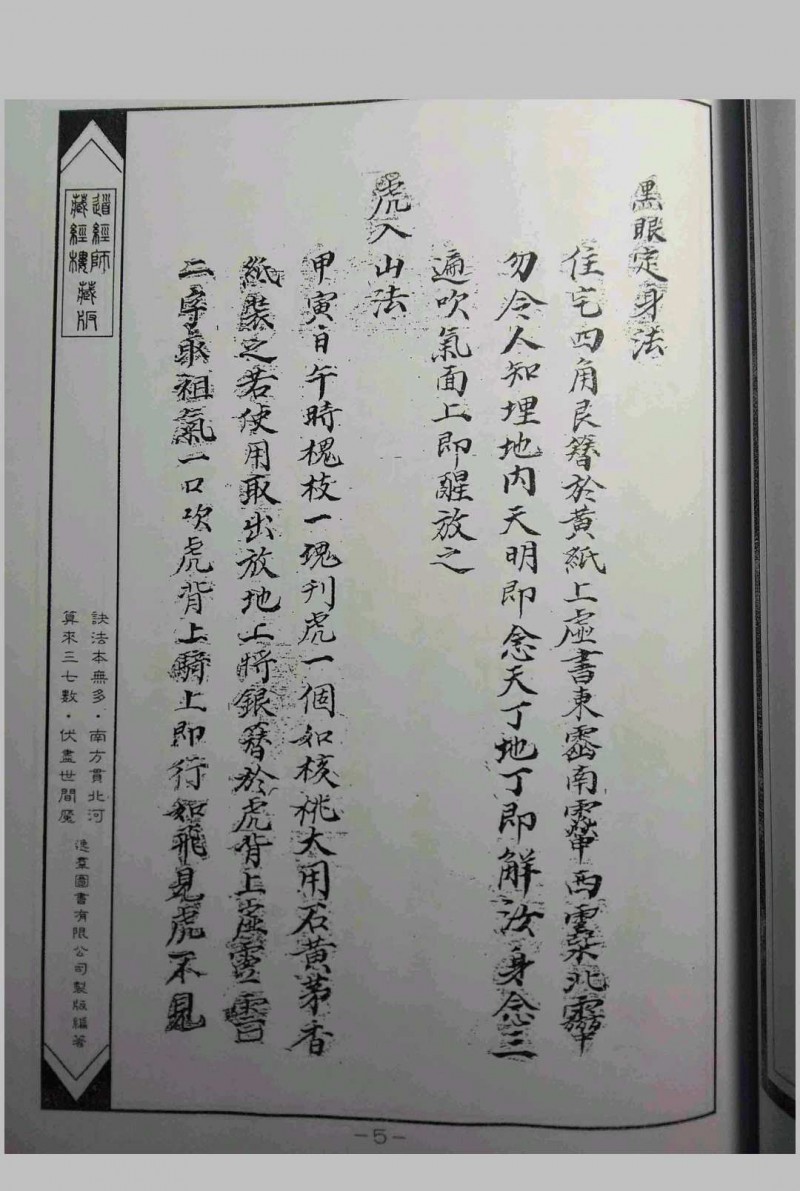 黑眼定身法
住宅四角艮簪於黃紙上虛書東南西北
勿令人知埋地内天明即念天丁地丁即解汝身念三
遍吹氣面上即醒放之
虎入山法
甲寅日午時槐枝一塊刋虎一個如核桃大用石黃茅香
紙裝之若使用取出放地上將銀簪於虎背上虛
二字取祖氣一口吹虎背上騎上即行如飛見虎不見
道經師
藏經樓藏版
訣法本無多・南方貫北河
算來三七數・伏盡世間魔
逸羣圖書有限公司製版編著
-5-